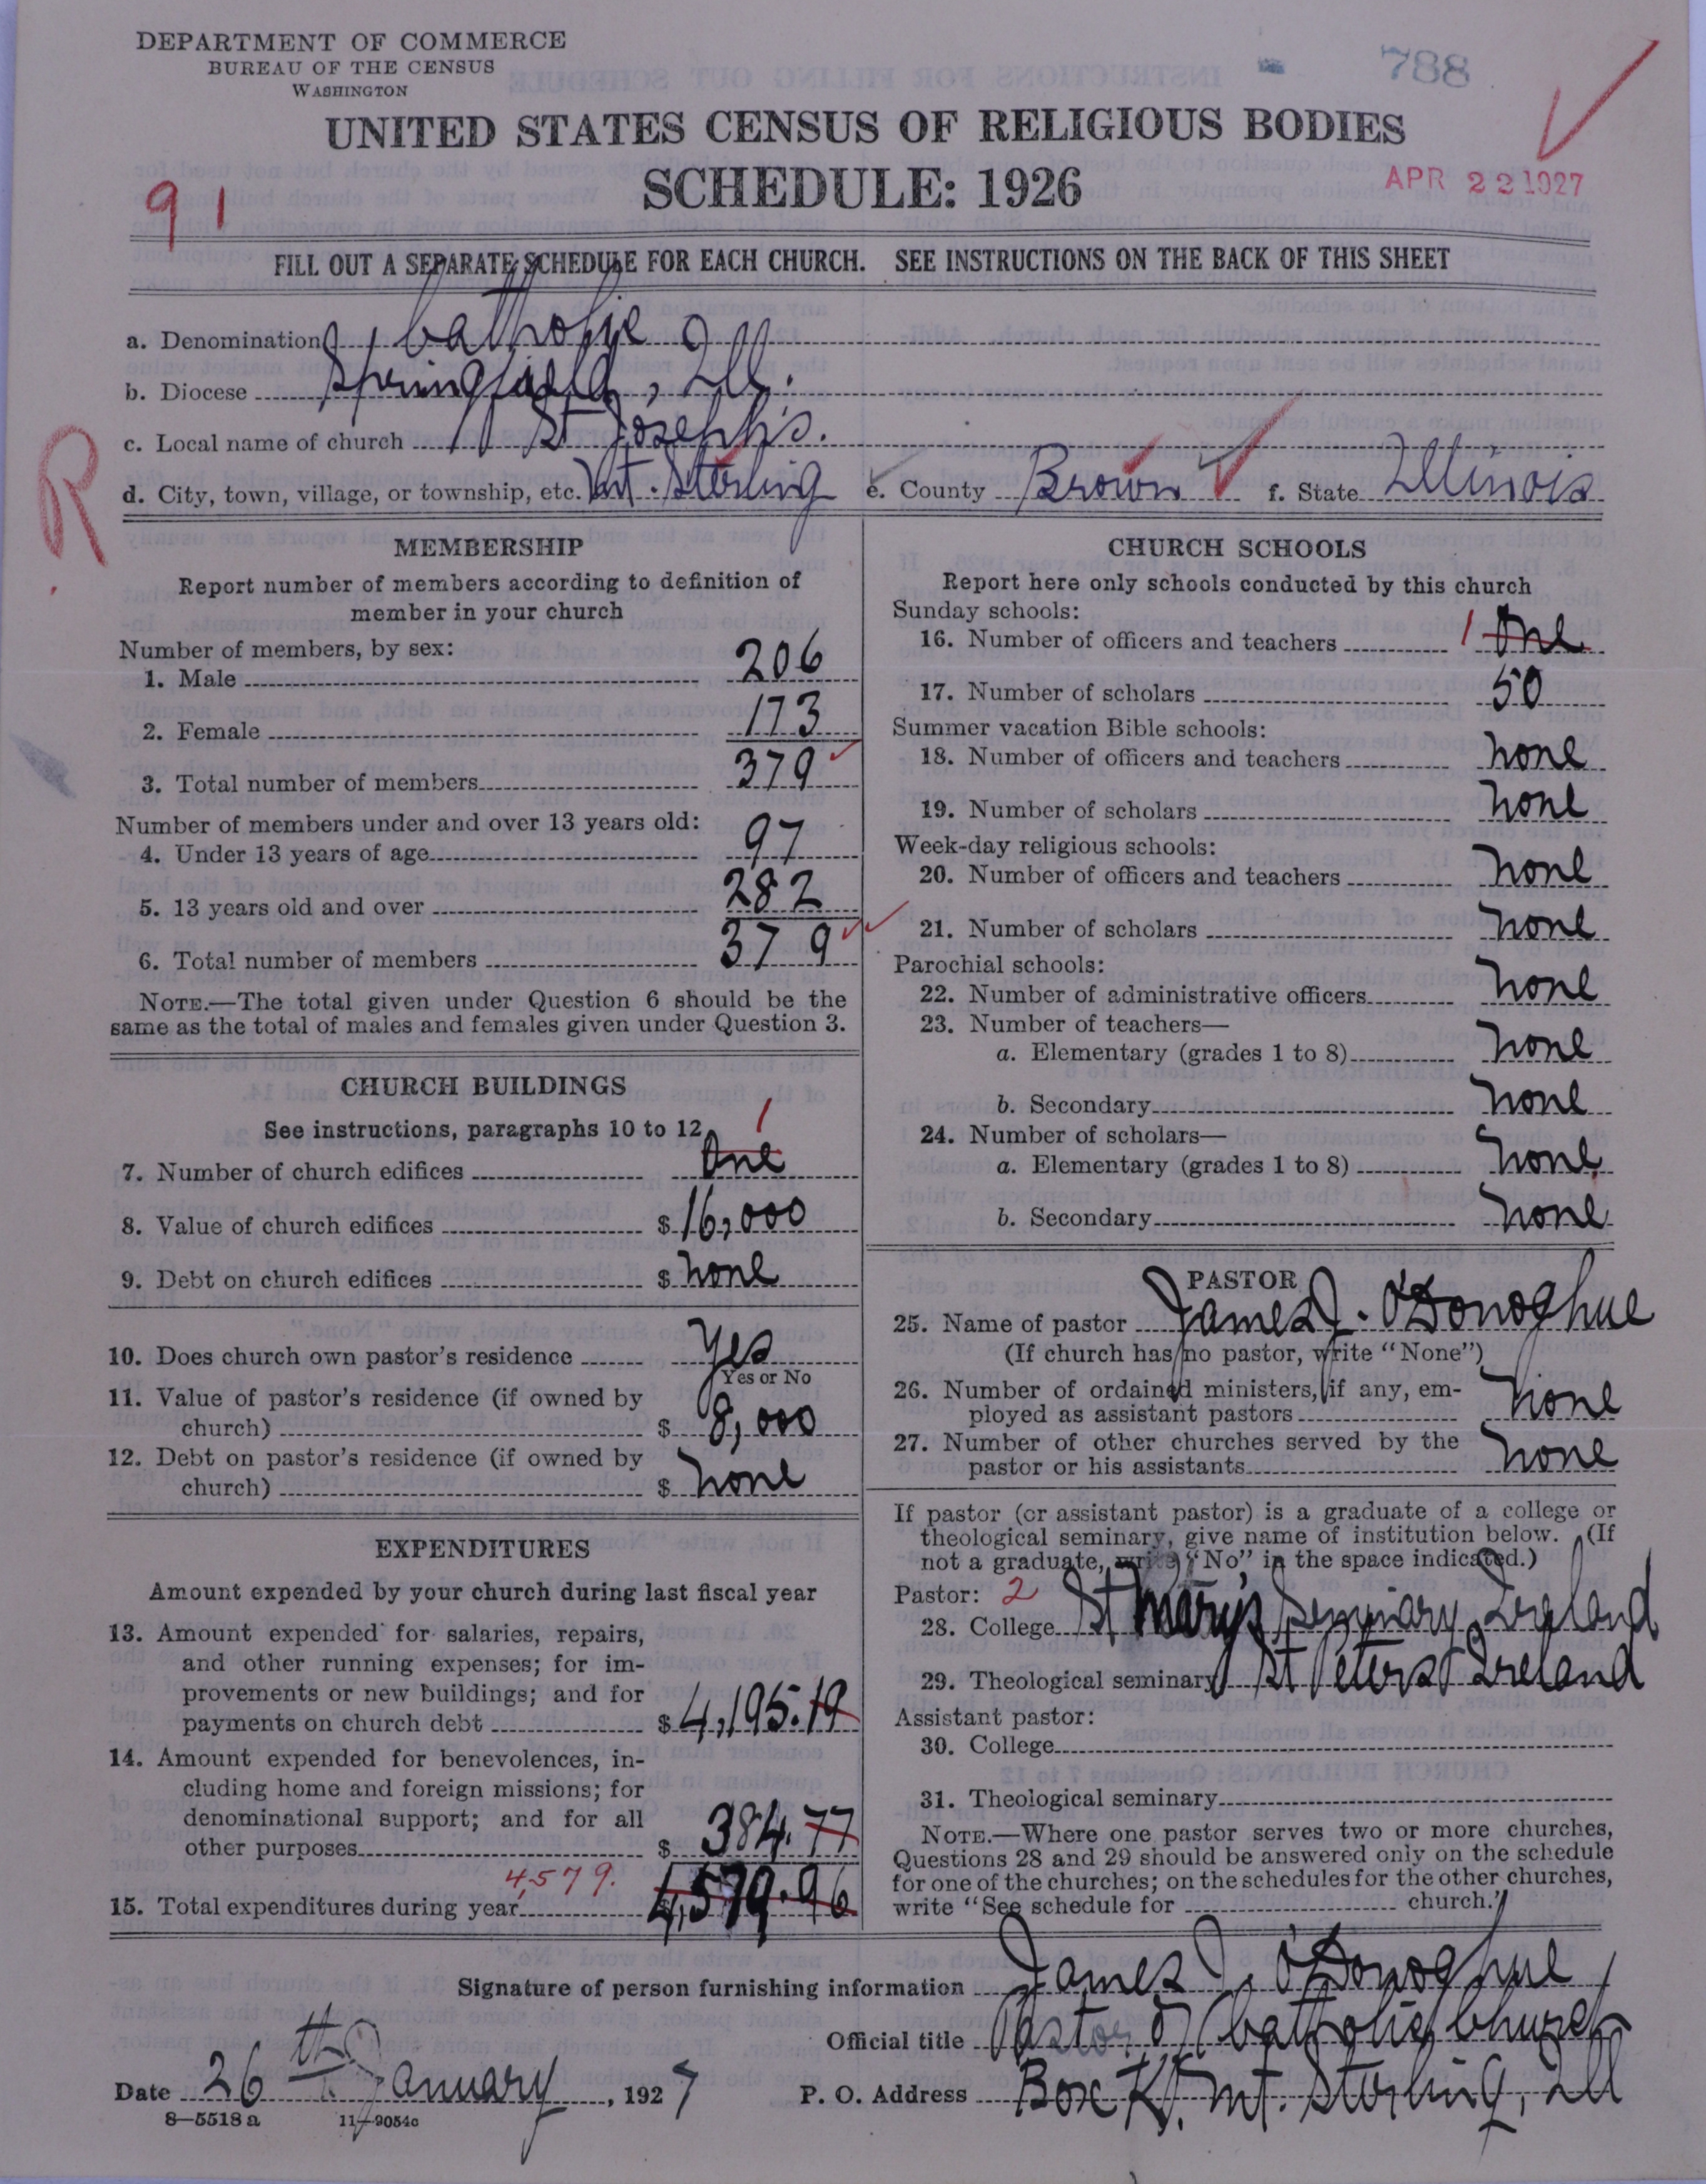 DEPARTMENT OF COMMERCE
BUREAU OF THE CENSUS
WASHINGTON
788
UNITED STATES CENSUS OF RELIGIOUS BODIES
SCHEDULE: 1926
APR 22 1927
91
FILL OUT A SEPARATE SCHEDULE FOR EACH CHURCH. SEE INSTRUCTIONS ON THE BACK OF THIS SHEET
a. Denomination Catholic
b. Diocese Springfield, Ill.
c. Local name of church St Joseph's.
d. City, town, village, or township, etc. Mt. Sterling e. County Brown f. State Illinois
R
MEMBERSHIP
Report number of members according to definition of
member in your church
Number of members, by sex:
1. Male 206
2. Female 173
3. Total number of members 379
Number of members under and over 13 years old:
4. Under 13 years of age 97
5. 13 years old and over 282
6. Total number of members 379
NOTE.—The total given under Question 6 should be the
same as the total of males and females given under Question 3.
CHURCH BUILDINGS
See instructions, paragraphs 10 to 12
7. Number of church edifices One 1
8. Value of church edifices $ 16,000
9. Debt on church edifices $ none
10. Does church own pastor's residence Yes
Yes or No
11. Value of pastor's residence (if owned by
church) $ 8,000
12. Debt on pastor's residence (if owned by
church) $ none
EXPENDITURES
Amount expended by your church during last fiscal year
13. Amount expended for salaries, repairs,
and other running expenses; for im-
provements or new buildings; and for
payments on church debt $ 4,195.19
14. Amount expended for benevolences, in-
cluding home and foreign missions; for
denominational support; and for all
other purposes $ 384.77
15. Total expenditures during year 4,579. 4,579.96
CHURCH SCHOOLS
Report here only schools conducted by this church
Sunday schools:
16. Number of officers and teachers 1 One
17. Number of scholars 50
Summer vacation Bible schools:
18. Number of officers and teachers none
19. Number of scholars none
Week-day religious schools:
20. Number of officers and teachers none
21. Number of scholars none
Parochial schools:
22. Number of administrative officers none
23. Number of teachers—
a. Elementary (grades 1 to 8) none
b. Secondary none
24. Number of scholars—
a. Elementary (grades 1 to 8) none
b. Secondary none
PASTOR
25. Name of pastor James J. O'Donoghue
(If church has no pastor, write "None")
26. Number of ordained ministers, if any, em-
ployed as assistant pastors none
27. Number of other churches served by the
pastor or his assistants none
If pastor (or assistant pastor) is a graduate of a college or
theological seminary, give name of institution below. (If
not a graduate, write "No" in the space indicated.)
Pastor: 2
28. College St Mary's Seminary Ireland
29. Theological seminary St Peters Ireland
Assistant pastor:
30. College
31. Theological seminary
NOTE.—Where one pastor serves two or more churches,
Questions 28 and 29 should be answered only on the schedule
for one of the churches; on the schedules for the other churches,
write "See schedule for church."
Signature of person furnishing information James J. O'Donoghue
Official title Pastor of Catholic Church
Date 26th January, 1927 P. O. Address Box K, Mt. Sterling, Ill
8—5518 a 11—9054c